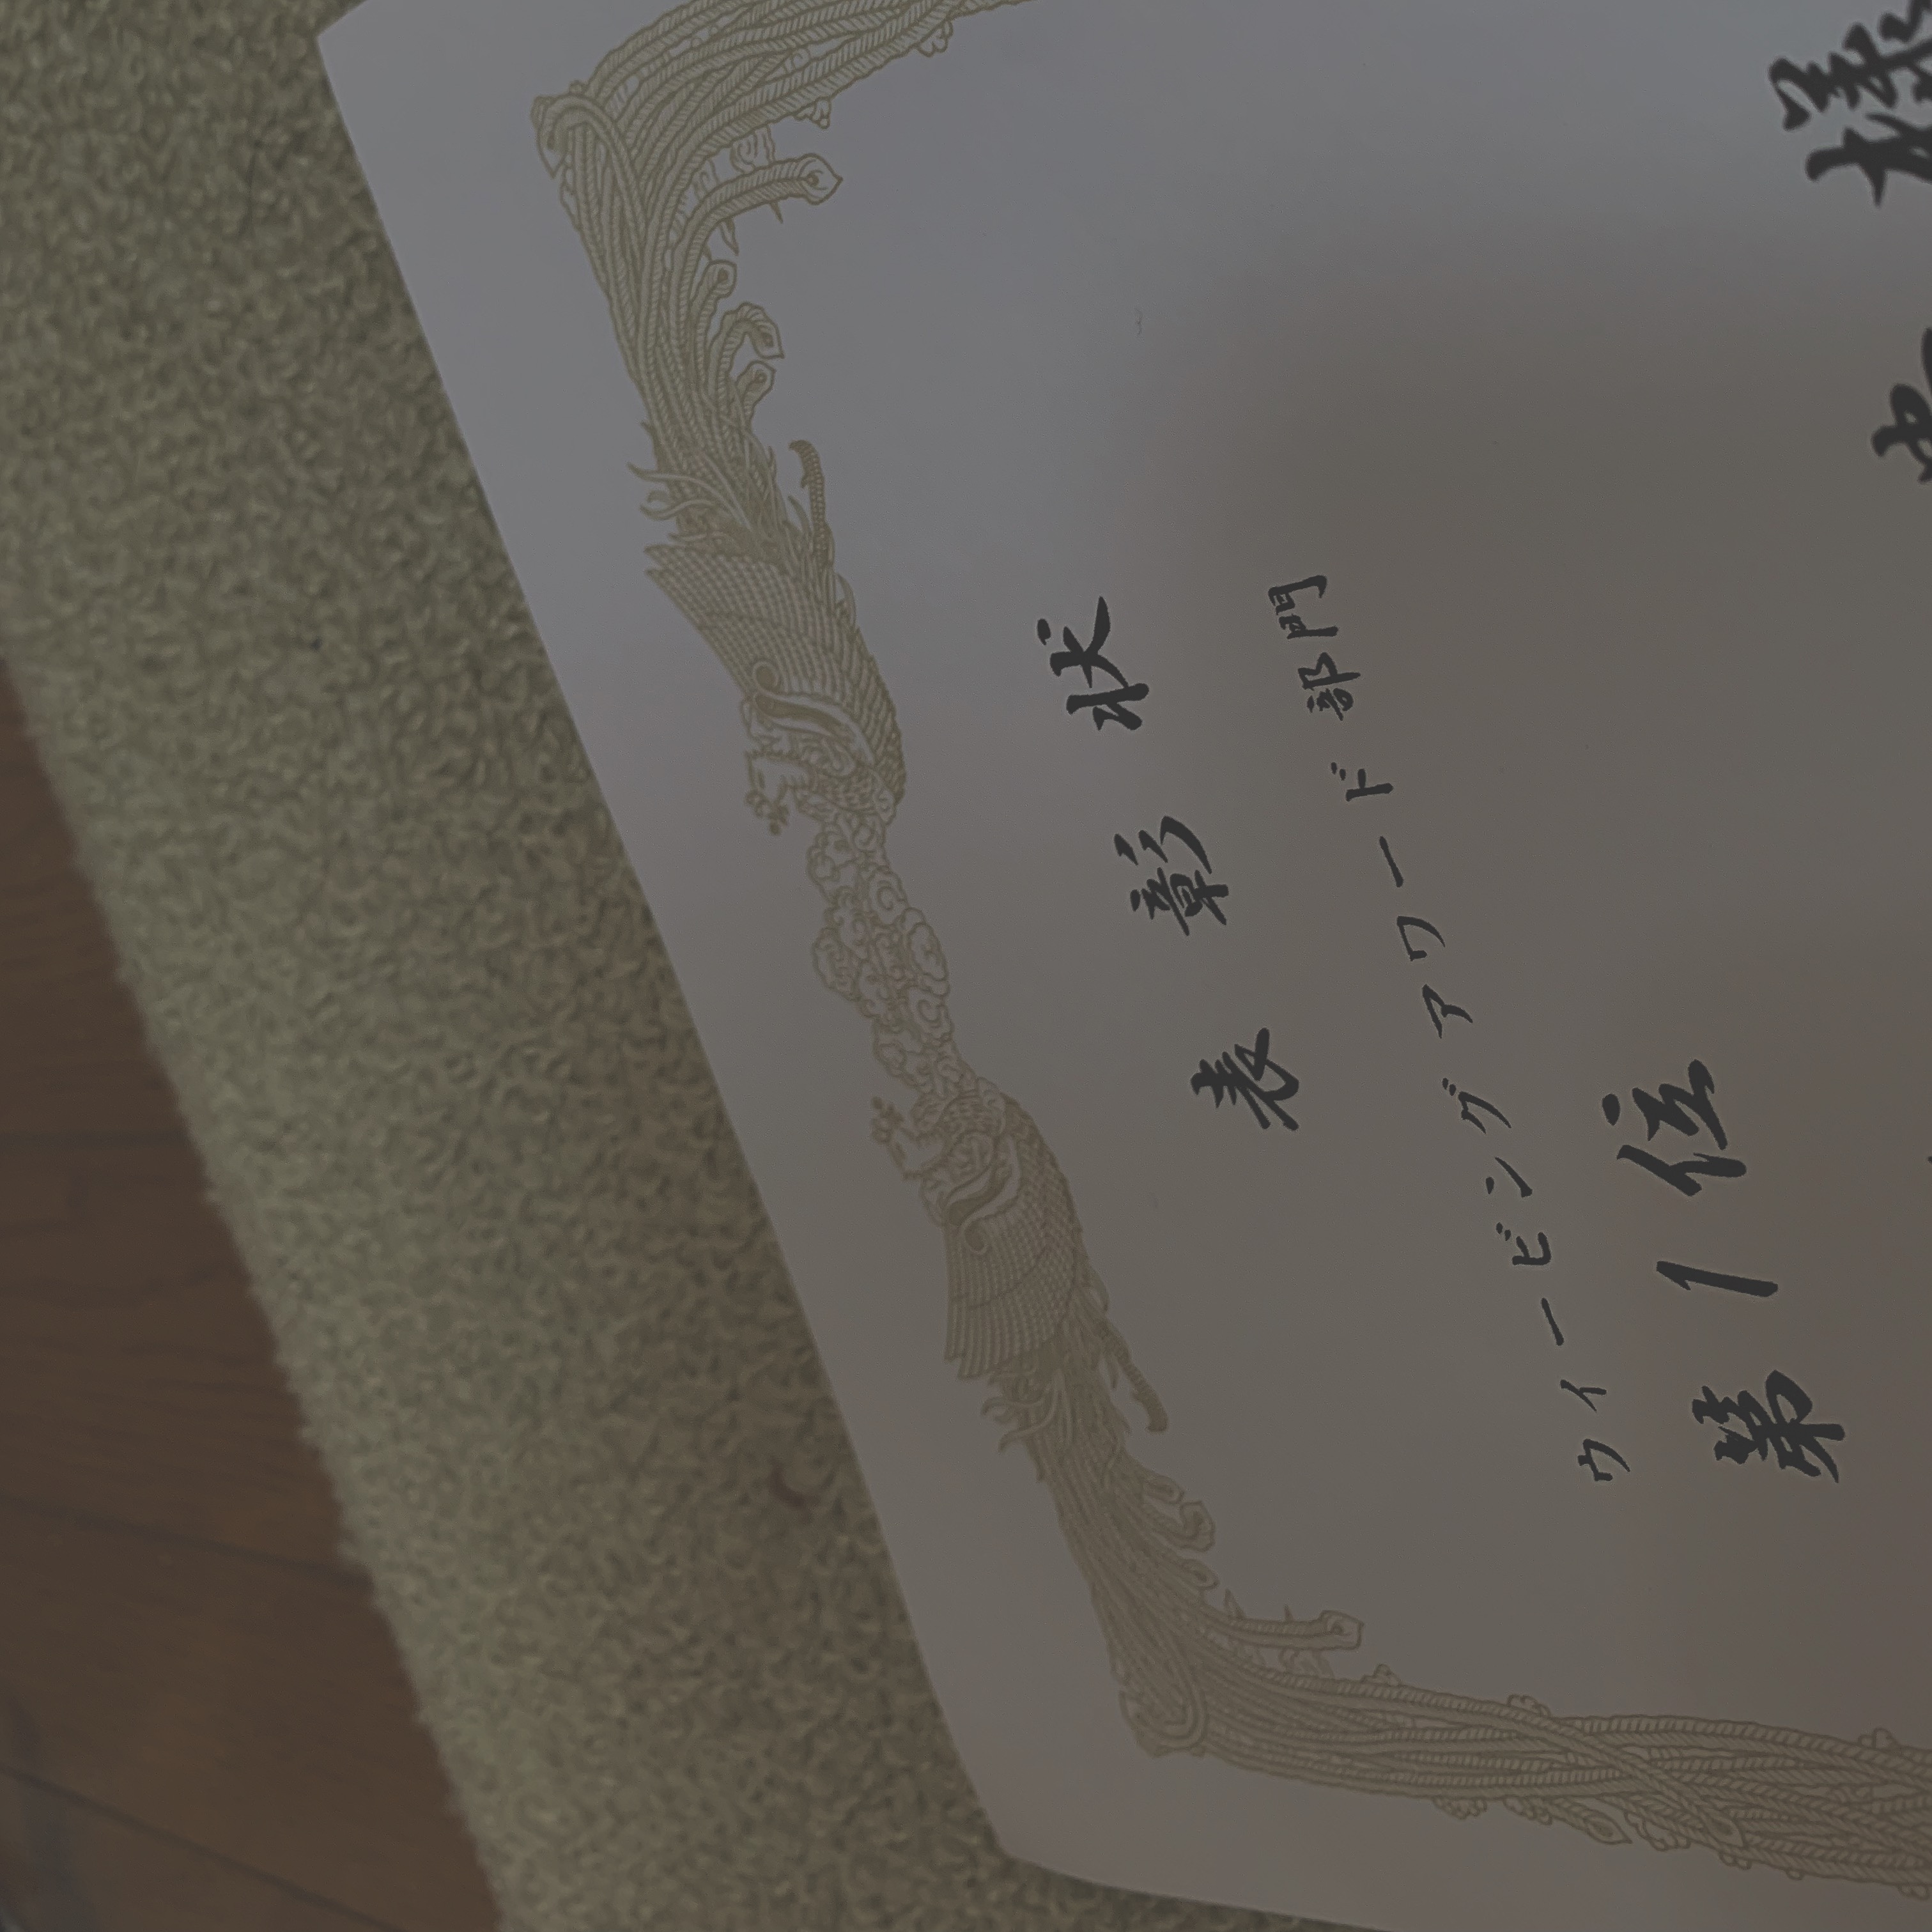 表彰状
ウィービングアワード部門
第1位
様